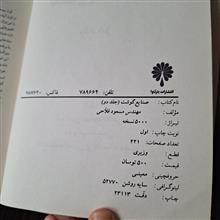 انتشارات بارثاوا
تلفن: ۷۸۹۶۶۴ فاکس: ۷۸۹۶۴۰
نام کتاب: صنایع گوشت (جلد دو)
مؤلف: مهندس مسعود فلاحی
تیراژ: ۵۰۰۰ نسخه
نوبت چاپ: اول
تعداد صفحات: ۴۳۱
قطع: وزیری
قیمت: ۵۰۰ تومان
حروفچینی: معینی
لیتوگرافی: سایه روشن ۵۳۷۷۰
چاپ: دقت ۲۳۱۱۳